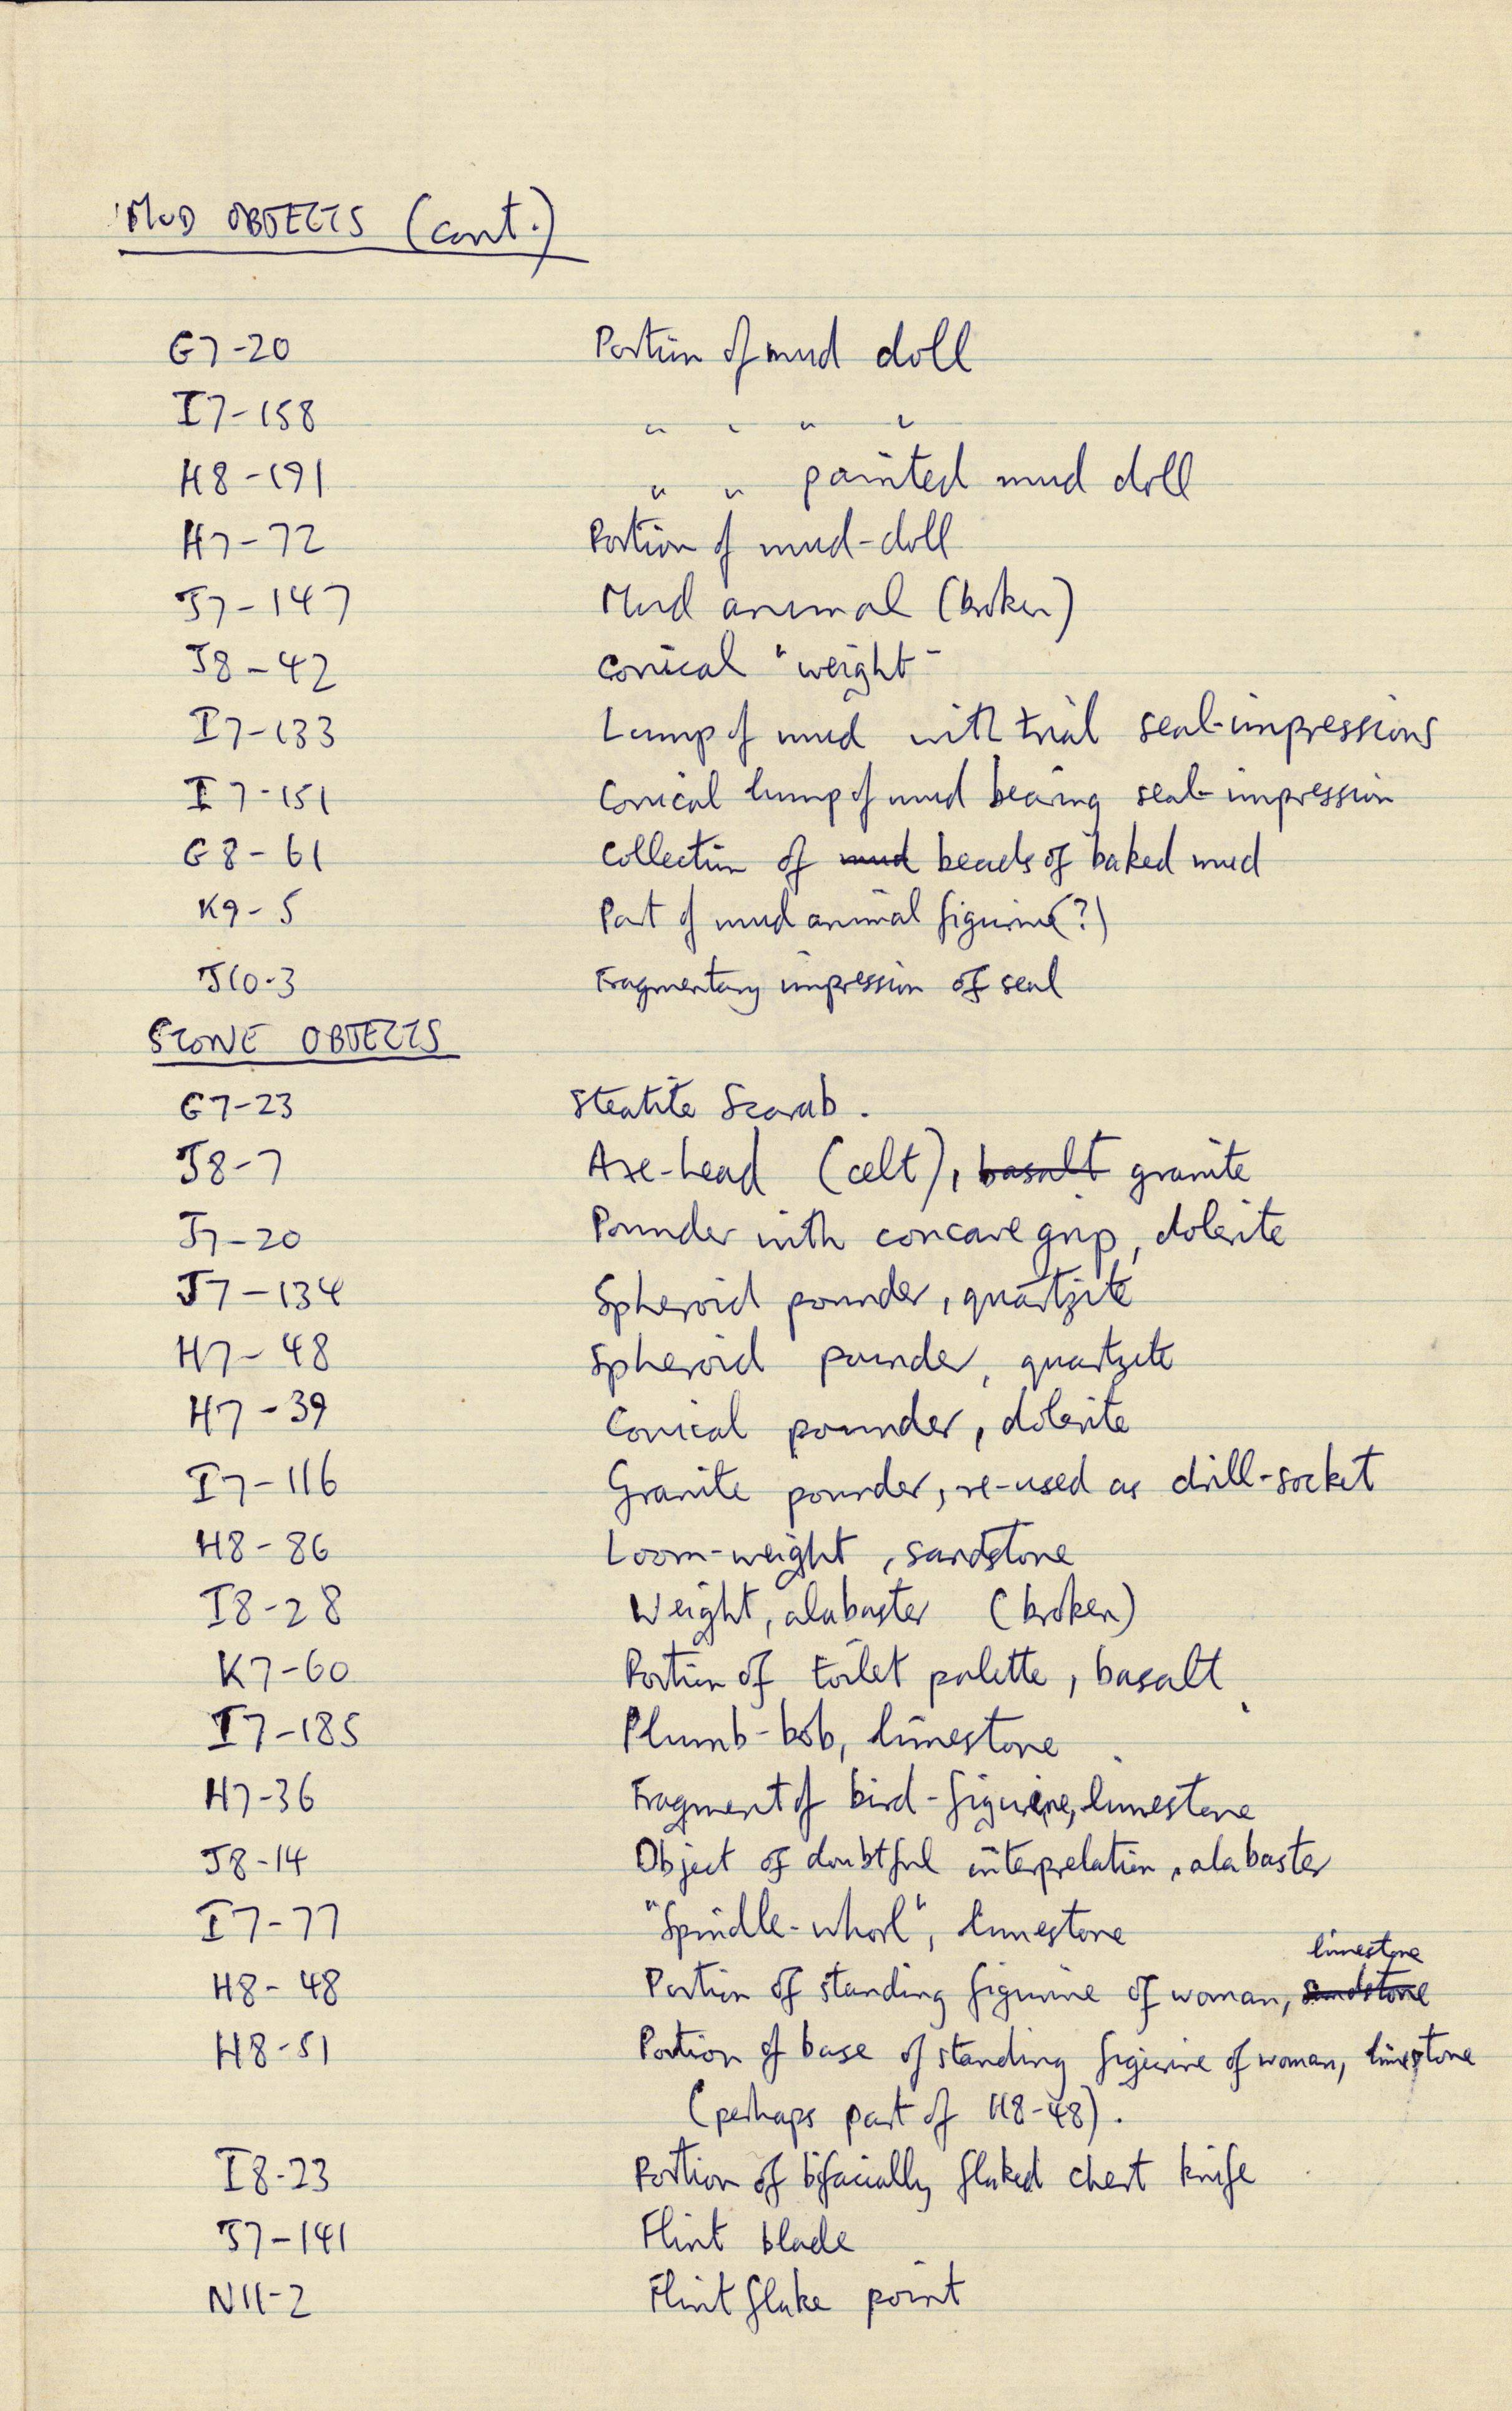 MUD OBJECTS (cont.)
G7-20 Portion of mud doll
I7-158 " " " "
H8-191 " " painted mud doll
H7-72 Portion of mud-doll
J7-147 Mud animal (broken)
J8-42 Conical "weight"
I7-133 Lump of mud with trial seal-impressions
I7-151 Conical lump of mud bearing seal-impression
G8-61 Collection of mud beads of baked mud
K9-5 Part of mud animal figurine (?)
J10-3 Fragmentary impression of seal
STONE OBJECTS
G7-23 Steatite Scarab.
J8-7 Axe-head (celt), basalt granite
J7-20 Pounder with concave grip, dolerite
J7-134 Spheroid pounder, quartzite
H7-48 Spheroid pounder, quartzite
H7-39 Conical pounder, dolerite
I7-116 Granite pounder, re-used as drill-socket
H8-86 Loom-weight, sandstone
I8-28 Weight, alabaster (broken)
K7-60 Portion of toilet palette, basalt
I7-185 Plumb-bob, limestone
H7-36 Fragment of bird-figurine, limestone
J8-14 Object of doubtful interpretation, alabaster
I7-77 "Spindle-whorl", limestone
limestone
H8-48 Portion of standing figurine of woman, sandstone
H8-51 Portion of base of standing figurine of woman, limestone
(perhaps part of H8-48).
I8-23 Portion of bifacially flaked chert knife
J7-141 Flint blade
N11-2 Flint flake point